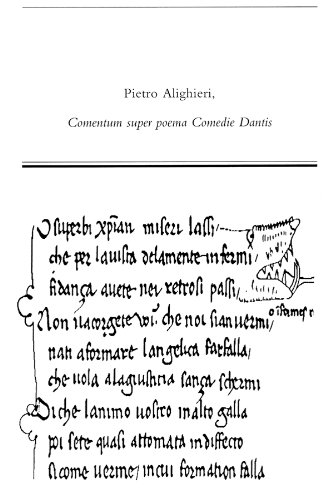 Pietro Alighieri,
Comentum super poema Comedie Dantis
O superbi xp̅ian miseri lassi
che per la uista dela mente infermi
fidança auete nei retrosi passi
Non uacorgete uuͥ che noi sian uermi
nati aformare langelica farfalla
che uola ala giustitia sança schermi
Di che lanimo uostro inalto galla
poi sete quasi attomata indiffecto
sicome uerme in cui formation falla